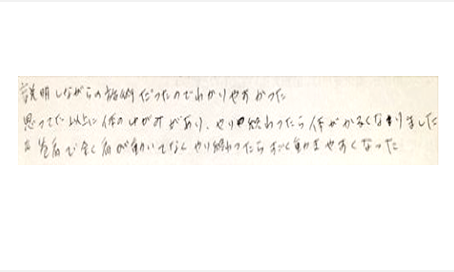 説明しながらの施術だったのでわかりやすかった
思ってた以上に体のゆがみがあり、やり終わったら体がかるくなりました
で全く肩が動いてなく やり終わったらすごく動きやすくなった